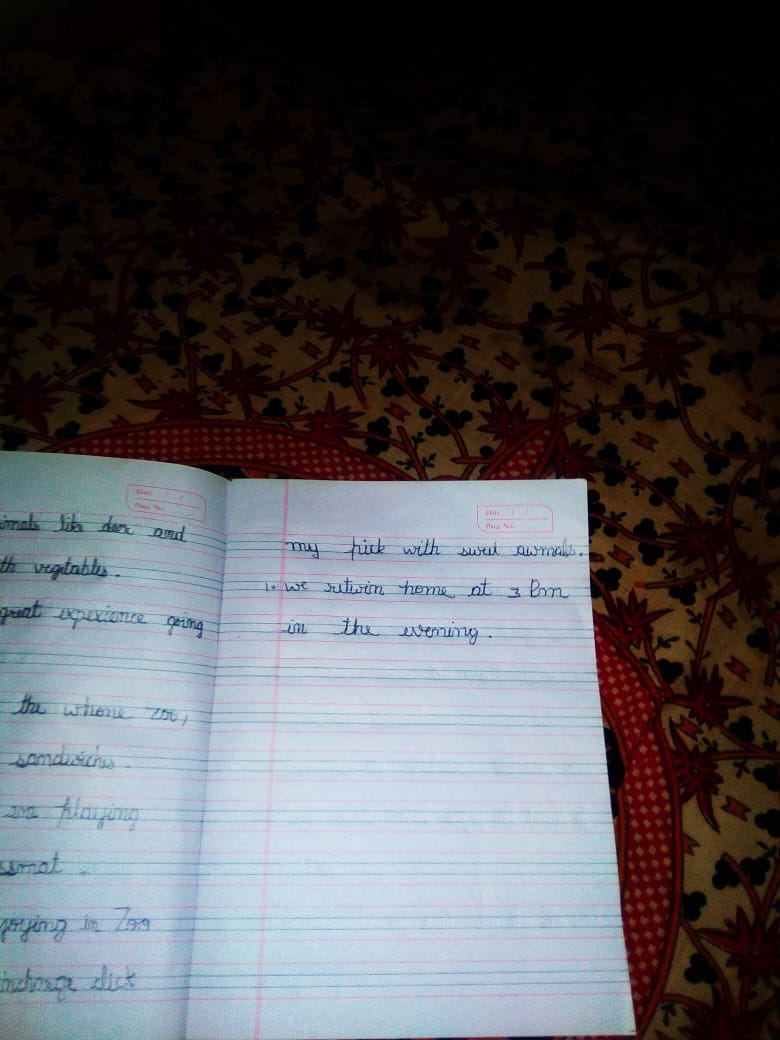 Date / /
Page No.
imals like deer and
th vegitables.
great experience going
the whone zoo,
sandwichs.
playing
joying in Zoo
click
Date / /
Page No.
my pick with animals.
we return home at 3 Pm
in the evening.